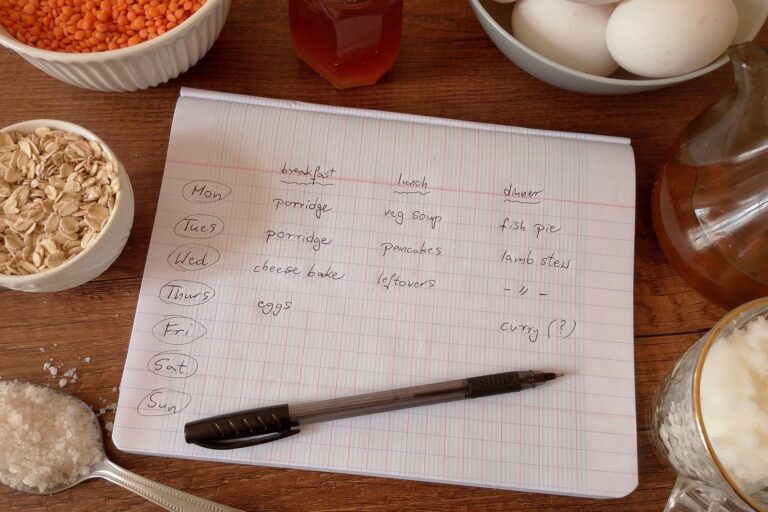 breakfast lunch dinner
Mon porridge veg soup fish pie
Tues porridge pancakes lamb stew
Wed cheese bake leftovers - " -
Thurs eggs curry (?)
Fri
Sat
Sun